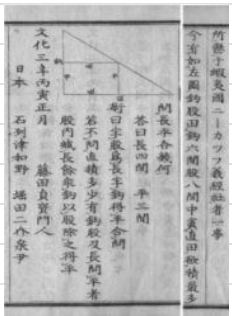 所懸于蝦夷國ニーカツフ義經社者一事
今有如左圖鈎股田鈎六間股八間中容直田欲積最多
問長平各幾何
答曰長四間 平三間
術曰半股爲長半鈎得平合問
若不問直積多少有鈎股及長問平者
股内減長餘乘鈎以股除之得平
文化三年丙寅正月 藤田貞資門人
日本 石列津和野 堀田二作泉尹